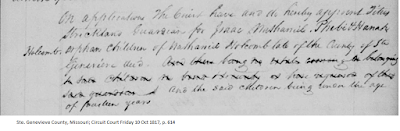 On application the Court have and do hereby appoint Titus
Strickland Guardian for Isaac, Nathaniel, Phebe & Hanah
Holcombe orphan children of Nathaniel Holcomb late of the County of Ste
Genevieve decd. And there being no estate coming or belonging
to said children no bond
and the said children being under the age
of fourteen years
Ste. Genevieve County, Missouri, Circuit Court Friday 10 Oct 1817, p. 614